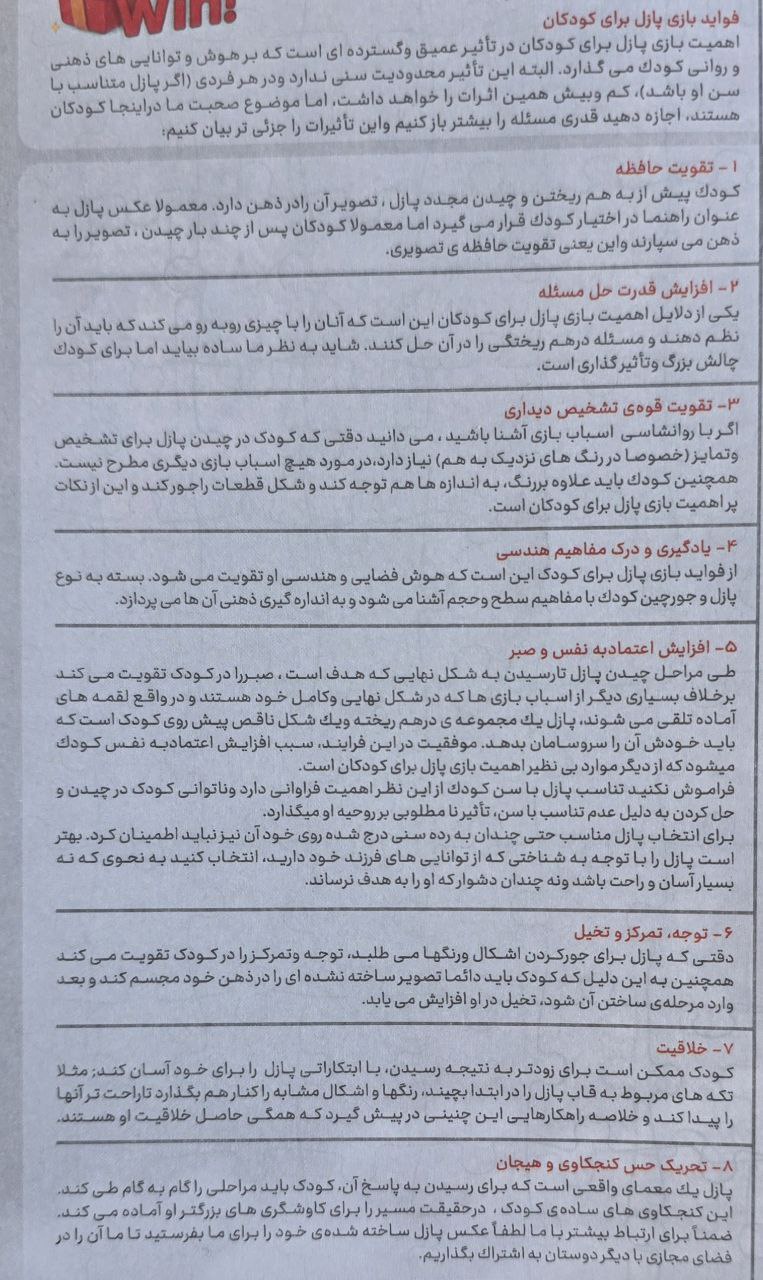 win!
فواید بازی پازل برای کودکان
اهمیت بازی پازل برای کودکان در تأثیر عمیق وگسترده ای است که بر هوش و توانایی های ذهنی
و روانی کودك می گذارد. البته این تأثیر محدودیت سنی ندارد ودر هر فردی (اگر پازل متناسب با
سن او باشد)، کم وبیش همین اثرات را خواهد داشت، اما موضوع صحبت ما دراینجا کودکان
هستند، اجازه دهید قدری مسئله را بیشتر باز کنیم واین تأثیرات را جزئی تر بیان کنیم:
۱- تقویت حافظه
کودك پیش از به هم ریختن و چیدن مجدد پازل ، تصویر آن رادر ذهن دارد. معمولا عکس پازل به
عنوان راهنما در اختیار کودك قرار می گیرد اما معمولا کودکان پس از چند بار چیدن ، تصویر را به
ذهن می سپارند واین یعنی تقویت حافظه ی تصویری.
۲- افزایش قدرت حل مسئله
یکی از دلایل اهمیت بازی پازل برای کودکان این است که آنان را با چیزی روبه رو می کند که باید آن را
نظم دهند و مسئله درهم ریختگی را در آن حل کنند. شاید به نظر ما ساده بیاید اما برای کودك
چالش بزرگ وتأثیر گذاری است.
۳- تقویت قوه‌ی تشخیص دیداری
اگر با روانشاسی اسباب بازی آشنا باشید ، می دانید دقتی که کودک در چیدن پازل برای تشخیص
وتمایز (خصوصا در رنگ های نزدیک به هم) نیاز دارد،در مورد هیچ اسباب بازی دیگری مطرح نیست.
همچنین کودك باید علاوه بررنگ، به اندازه ها هم توجه کند و شکل قطعات راجور کند و این از نکات
پر اهمیت بازی پازل برای کودکان است.
۴- یادگیری و درک مفاهیم هندسی
از فواید بازی پازل برای کودک این است که هوش فضایی و هندسی او تقویت می شود. بسته به نوع
پازل و جورچین کودك با مفاهیم سطح وحجم آشنا می شود و به انداره گیری ذهنی آن ها می پردازد.
۵- افزایش اعتمادبه نفس و صبر
طی مراحل چیدن پازل تارسیدن به شکل نهایی که هدف است ، صبررا در کودک تقویت می کند
برخلاف بسیاری دیگر از اسباب بازی ها که در شکل نهایی وکامل خود هستند و در واقع لقمه های
آماده تلقی می شوند، پازل یك مجموعه ی درهم ریخته ویك شکل ناقص پیش روی کودک است که
باید خودش آن را سروسامان بدهد. موفقیت در این فرایند، سبب افزایش اعتمادبه نفس کودك
میشود که از دیگر موارد بی نظیر اهمیت بازی پازل برای کودکان است.
فراموش نکنید تناسب پازل با سن کودك از این نظر اهمیت فراوانی دارد وناتوانی کودک در چیدن و
حل کردن به دلیل عدم تناسب با سن، تأثیر نا مطلوبی بر روحیه او میگذارد.
برای انتخاب پازل مناسب حتی چندان به رده سنی درج شده روی خود آن نیز نباید اطمینان کرد. بهتر
است پازل را با توجه به شناختی که از توانایی های فرزند خود دارید، انتخاب کنید به نحوی که نه
بسیار آسان و راحت باشد ونه چندان دشوار که او را به هدف نرساند.
۶- توجه، تمرکز و تخیل
دقتی که پازل برای جورکردن اشکال ورنگها می طلبد، توجه وتمرکز را در کودک تقویت می کند
همچنین به این دلیل که کودک باید دائما تصویر ساخته نشده ای را در ذهن خود مجسم کند و بعد
وارد مرحله‌ی ساختن آن شود، تخیل در او افزایش می یابد.
۷- خلاقیت
کودک ممکن است برای زودتر به نتیجه رسیدن، با ابتکاراتی پازل را برای خود آسان کند; مثلا
تکه های مربوط به قاب پازل را در ابتدا بچیند، رنگها و اشکال مشابه را کنار هم بگذارد تاراحت تر آنها
را پیدا کند و خلاصه راهکارهایی این چنینی در پیش گیرد که همگی حاصل خلاقیت او هستند.
۸- تحریک حس کنجکاوی و هیجان
پازل یك معمای واقعی است که برای رسیدن به پاسخ آن، کودک باید مراحلی را گام به گام طی کند.
این کنجکاوی های ساده‌ی کودک ، درحقیقت مسیر را برای کاوشگری های بزرگتر او آماده می کند.
ضمناً برای ارتباط بیشتر با ما لطفاً عکس پازل ساخته شده‌ی خود را برای ما بفرستید تا ما آن را در
فضای مجازی با دیگر دوستان به اشتراك بگذاریم.